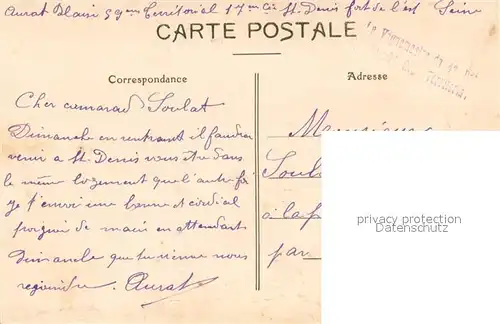 Aurat Blain 59em Territorial 17em Cie St. Denis fort de l'est Seine
CARTE POSTALE
Correspondance
Adresse
Cher camarad Soulat
Dimanche en rentrant il faudra
venir a St. Denis vous ête dans
le même logement que l'autre foi
je t'envoi une bonne et cordial
poigné de main en attendant
dimanche que tu vienne nous
rejoindre. Aurat
Monsieur
Soul
à la
par
privacy protection
Datenschutz